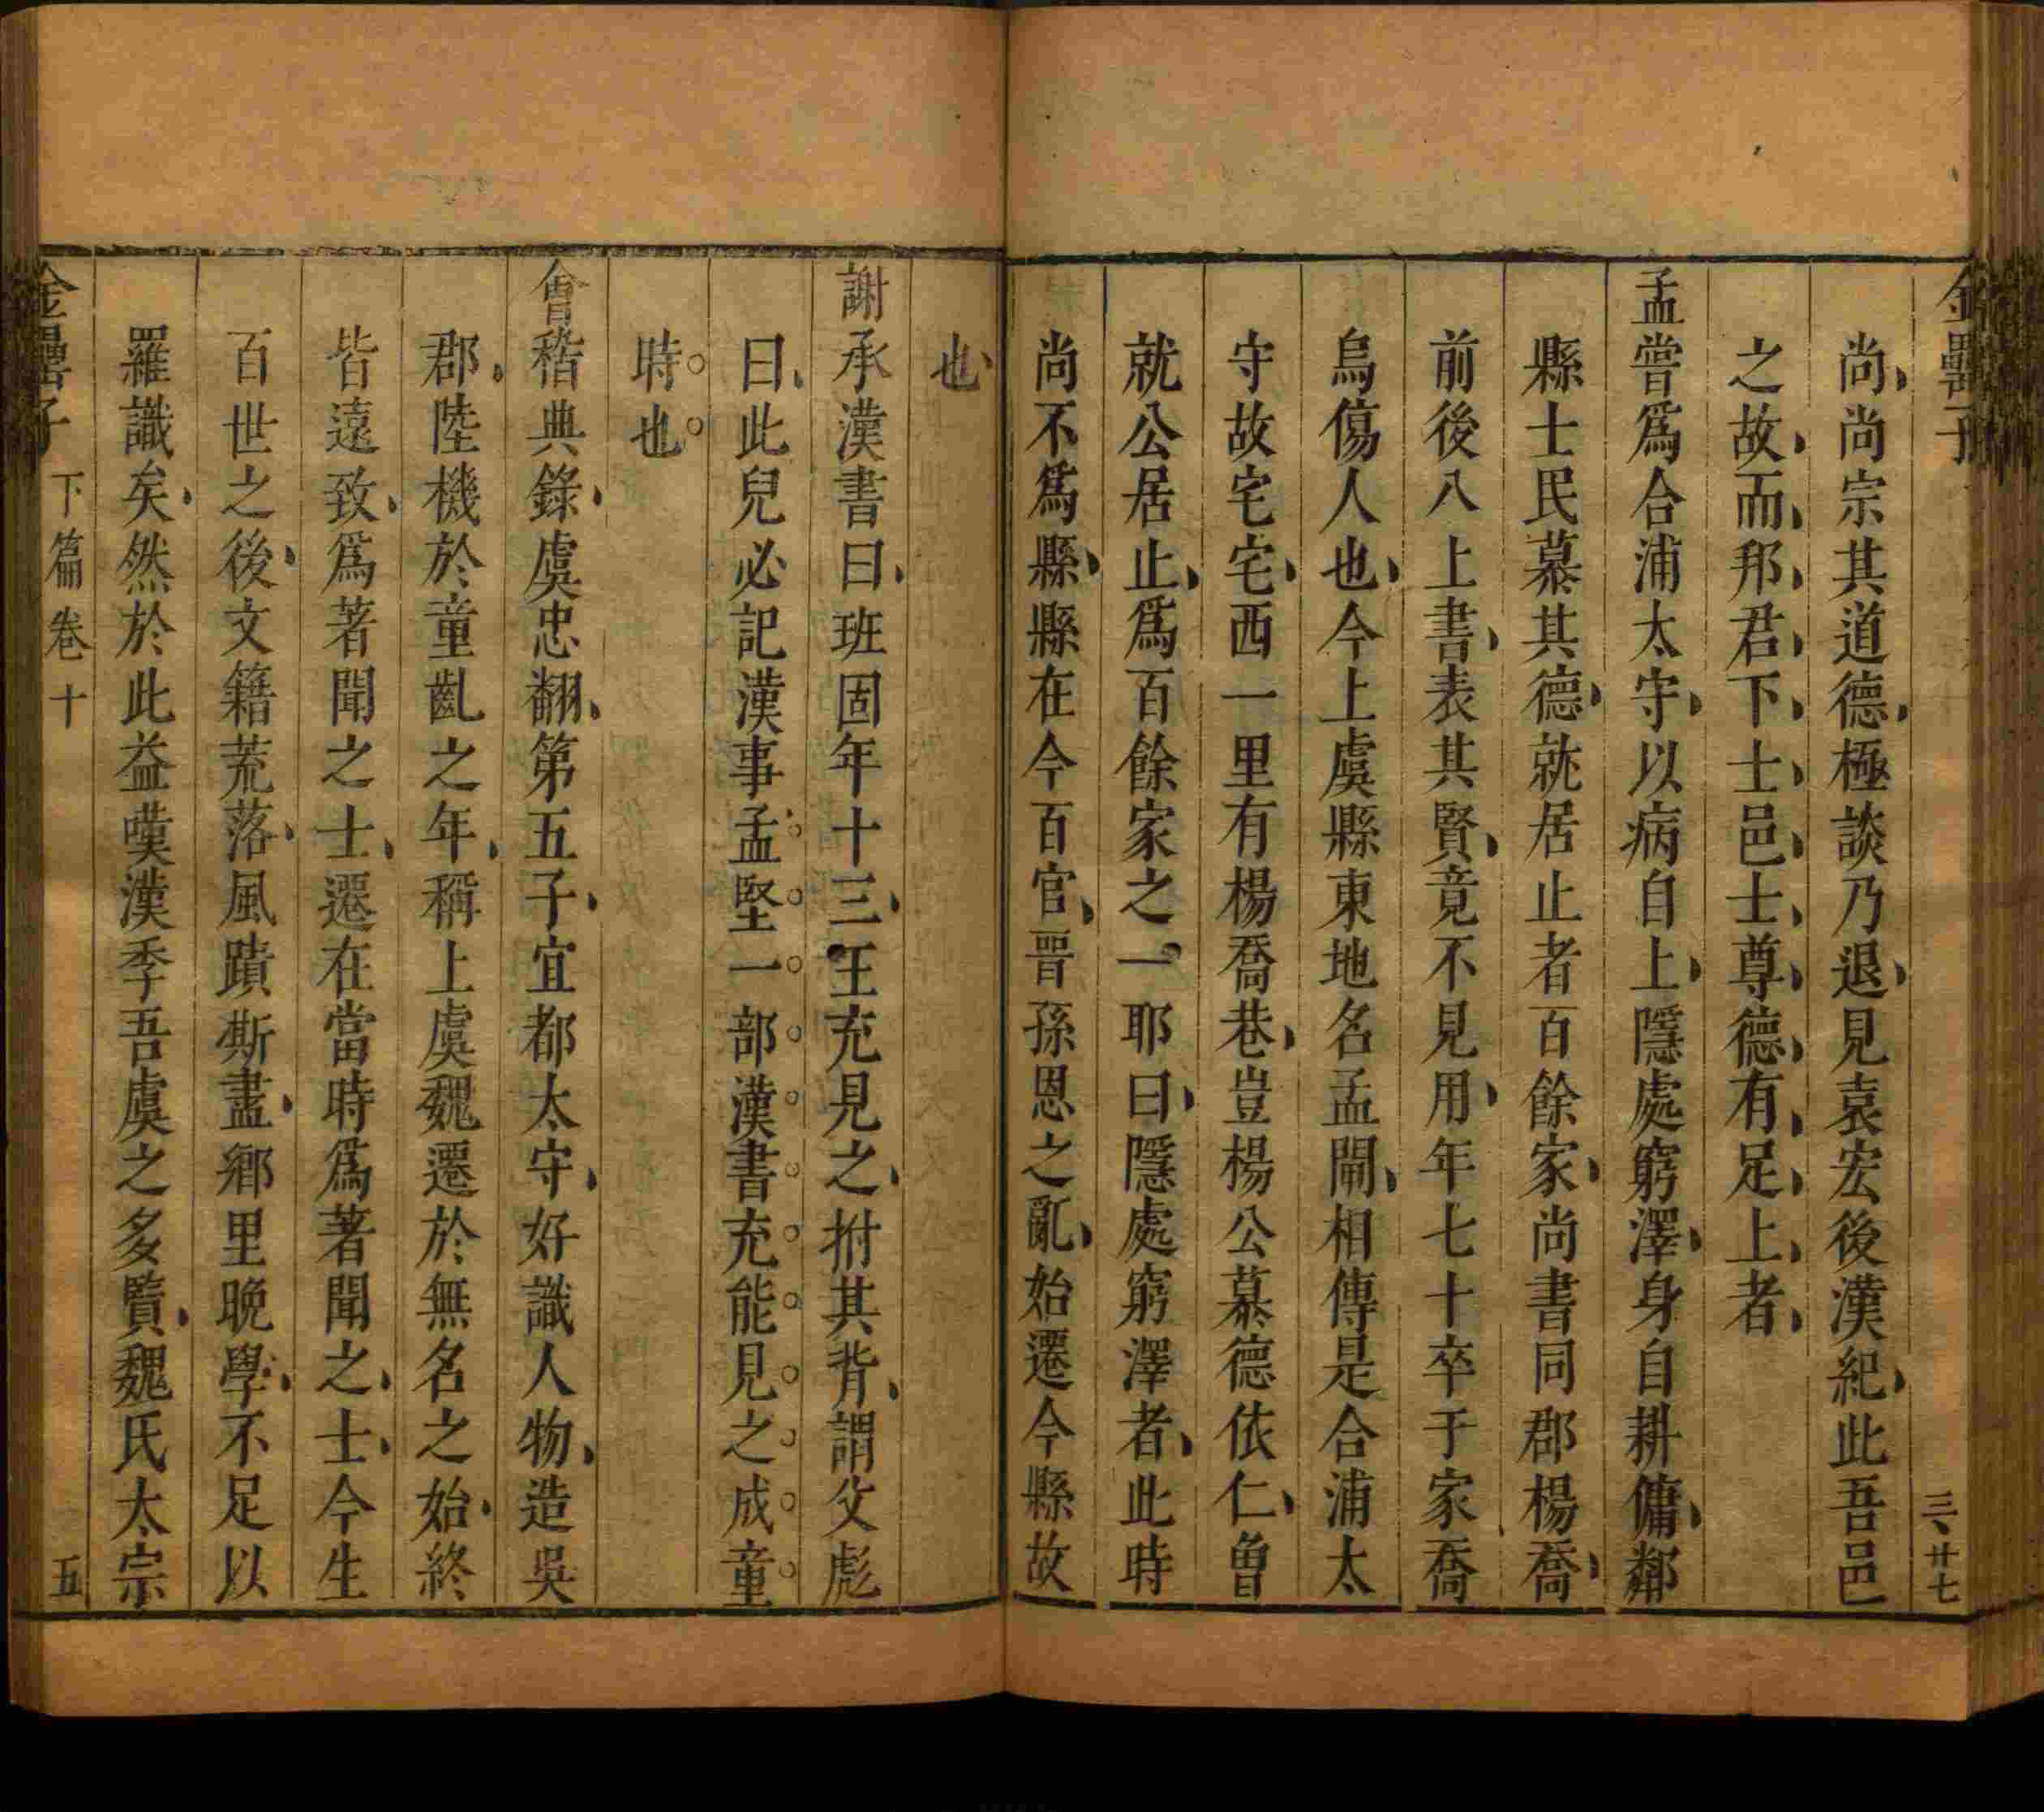 金罍子
三廿七
尚尚宗其道德極談乃退見袁宏後漢紀此吾邑
之故而邦君下士邑士尊德有足上者
孟嘗爲合浦太守以病自上隱處窮澤身自耕傭鄰
縣士民慕其德就居止者百餘家尚書同郡楊喬
前後八上書表其賢竟不見用年七十卒于家喬
烏傷人也今上虞縣東地名孟閘相傳是合浦太
守故宅宅西一里有楊喬巷豈楊公慕德依仁曾
就公居止爲百餘家之一耶曰隱處窮澤者此時
尚不爲縣縣在今百官晋孫恩之亂始遷今縣故
也
謝承漢書曰班固年十三王充見之拊其背謂父彪
曰此兒必記漢事孟堅一部漢書充能見之成童
時也
會稽典錄虞忠翻第五子宜都太守好識人物造吳
郡陸機於童齔之年稱上虞魏遷於無名之始終
皆遠致爲著聞之士遷在當時爲著聞之士今生
百世之後文籍荒落風蹟斯盡鄉里晚學不足以
羅識矣然於此益嘆漢季吾虞之多賢魏氏太宗
金罍子
下篇卷十
五